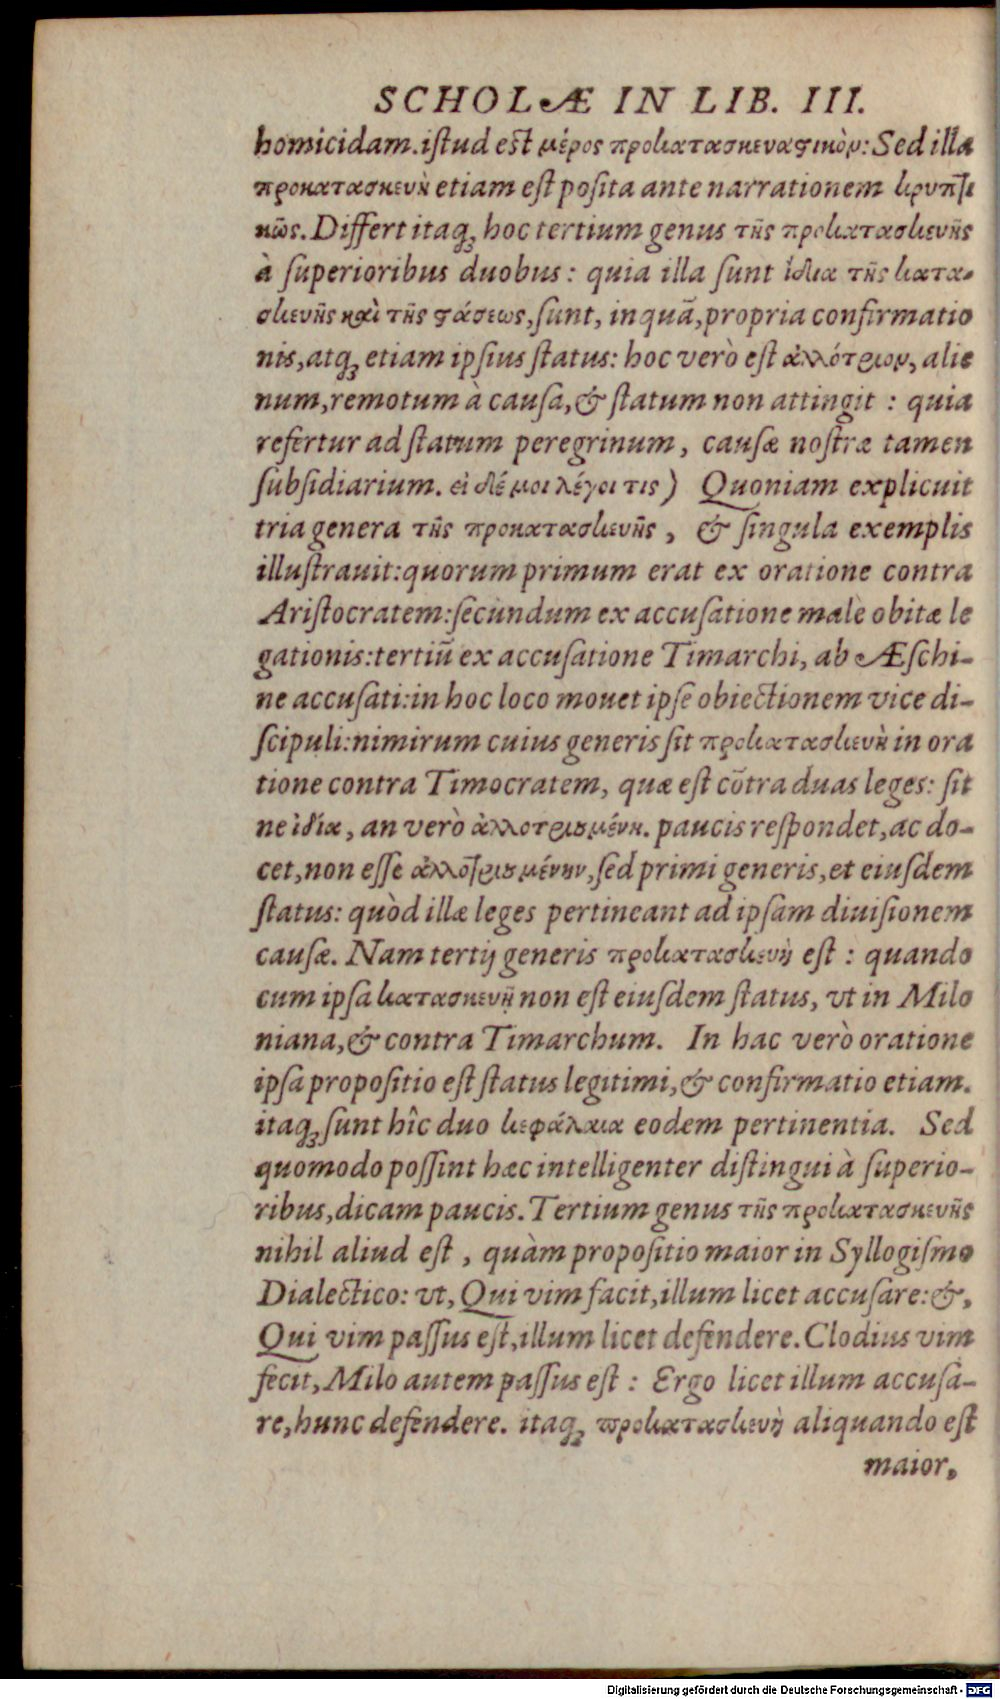 SCHOLÆ IN LIB. III.
homicidam. istud est μέρος προκατασκευαστικὸν: Sed illa
προκατασκευὴ etiam est posita ante narrationem κρυπτι
κῶς. Differt itaq; hoc tertium genus τῆς προκατασκευῆς
à superioribus duobus: quia illa sunt ἰδια τῆς κατα-
σκευῆς καὶ τῆς στάσεως, sunt, inquā, propria confirmatio
nis, atq; etiam ipsius status: hoc verò est ἀλλότριον, alie
num, remotum à causa, & statum non attingit : quia
refertur ad statum peregrinum, causæ nostræ tamen
subsidiarium. εἰ δέ μοι λέγοι τις) Quoniam explicuit
tria genera τῆς προκατασκευῆς, & singula exemplis
illustrauit: quorum primum erat ex oratione contra
Aristocratem: secundum ex accusatione malè obitæ le
gationis: tertiū ex accusatione Timarchi, ab Æschi-
ne accusati: in hoc loco mouet ipse obiectionem vice di-
scipuli: nimirum cuius generis sit προκατασκευὴ in ora
tione contra Timocratem, quæ est cōtra duas leges: sit
ne ἰδία, an verò ἀλλοτριουμένη. paucis respondet, ac do-
cet, non esse ἀλλοτριουμένην, sed primi generis, et eiusdem
status: quòd illæ leges pertineant ad ipsam diuisionem
causæ. Nam tertij generis προκατασκευὴ est : quando
cum ipsa κατασκευῇ non est eiusdem status, vt in Milo
niana, & contra Timarchum. In hac verò oratione
ipsa propositio est status legitimi, & confirmatio etiam.
itaq; sunt hîc duo κεφάλαια eodem pertinentia. Sed
quomodo possint hæc intelligenter distingui à superio-
ribus, dicam paucis. Tertium genus τῆς προκατασκευῆς
nihil aliud est, quàm propositio maior in Syllogismo
Dialectico: vt, Qui vim facit, illum licet accusare: &,
Qui vim passus est, illum licet defendere. Clodius vim
fecit, Milo autem passus est : Ergo licet illum accusa-
re, hunc defendere. itaq; προκατασκευὴ aliquando est
maior,
Digitalisierung gefördert durch die Deutsche Forschungsgemeinschaft - DFG